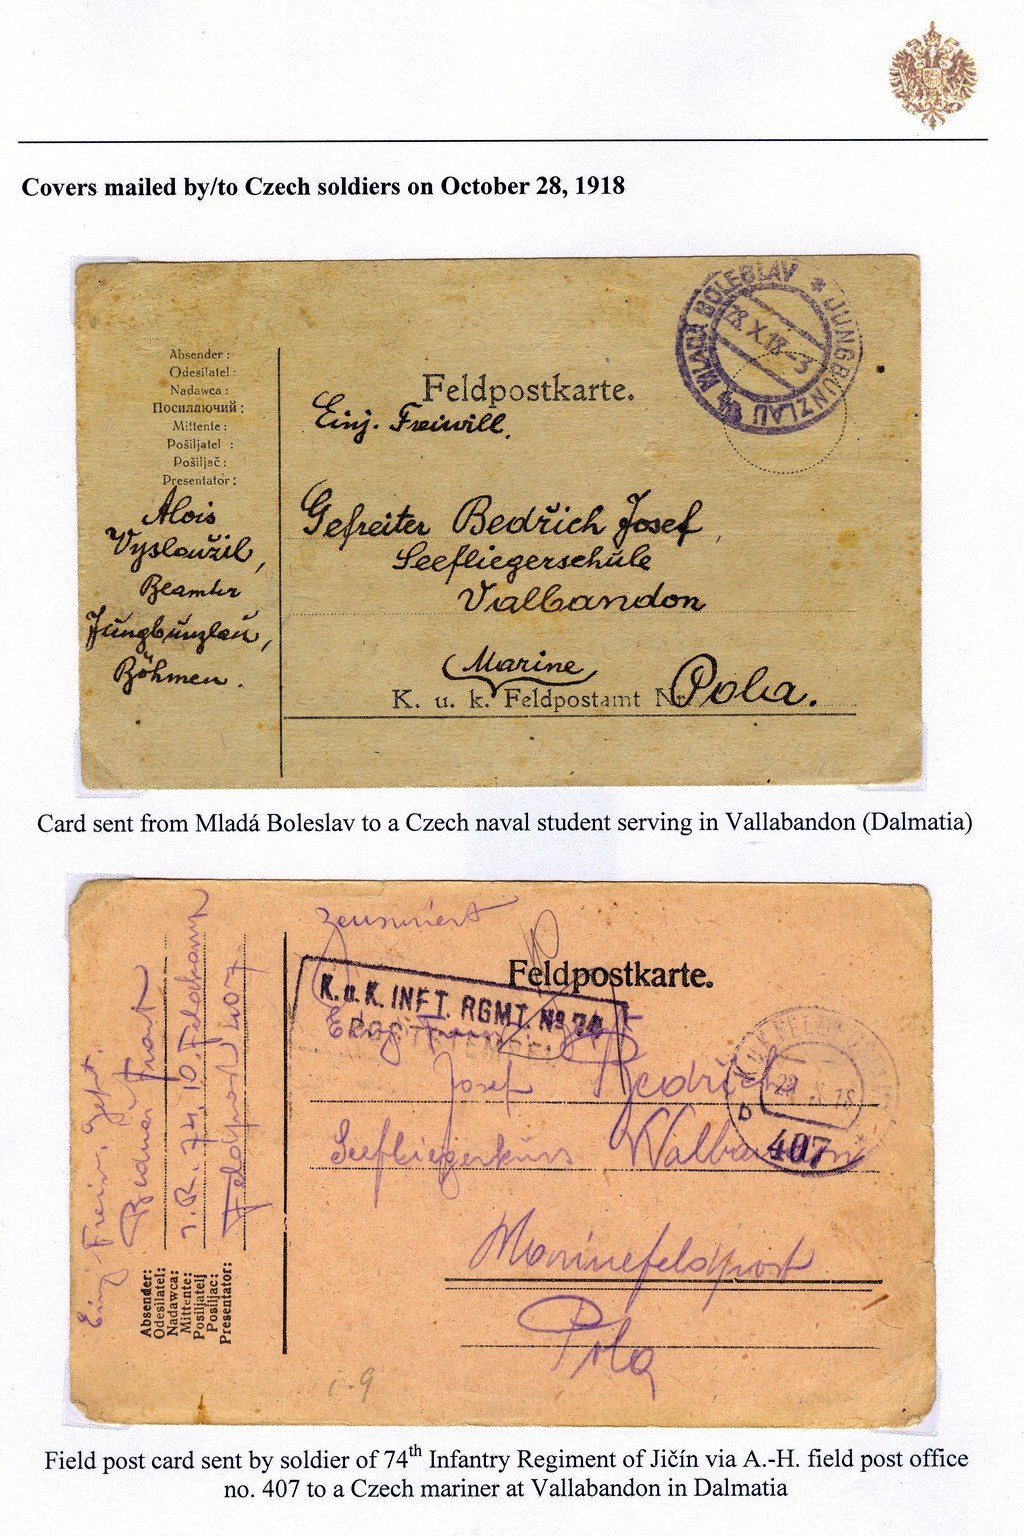 Covers mailed by/to Czech soldiers on October 28, 1918
MLADÁ BOLESLAV * JUNGBUNZLAU
28.X.18-3
Absender:
Odesílatel:
Nadawca:
Посилаючий:
Mittente:
Pošiljatel :
Pošiljač:
Presentator:
Alois
Vysloužil,
Beamter
Jungbunzlau,
Böhmen.
Feldpostkarte.
Einj. Freiwill.
Gefreiter Bedřich Josef,
Seefliegerschule
Valbandon
(Marine)
K. u. k. Feldpostamt Nr. Pola.
Card sent from Mladá Boleslav to a Czech naval student serving in Vallabandon (Dalmatia)
zensuriert
Feldpostkarte.
K.u.K. INFT. RGMT. No 74
Josef Bedřich
Seefliegerkurs Valbandon
Marinefeldpost
Pola
407
Einj. Freiw. Gefr.
Bednar
I.R. 74, 10. Feldkomp
Feldpost 407
Absender:
Odesílatel:
Nadawca:
Mittente:
Posiljatelj
Posiljac:
Presentator:
Field post card sent by soldier of 74th Infantry Regiment of Jičín via A.-H. field post office
no. 407 to a Czech mariner at Vallabandon in Dalmatia